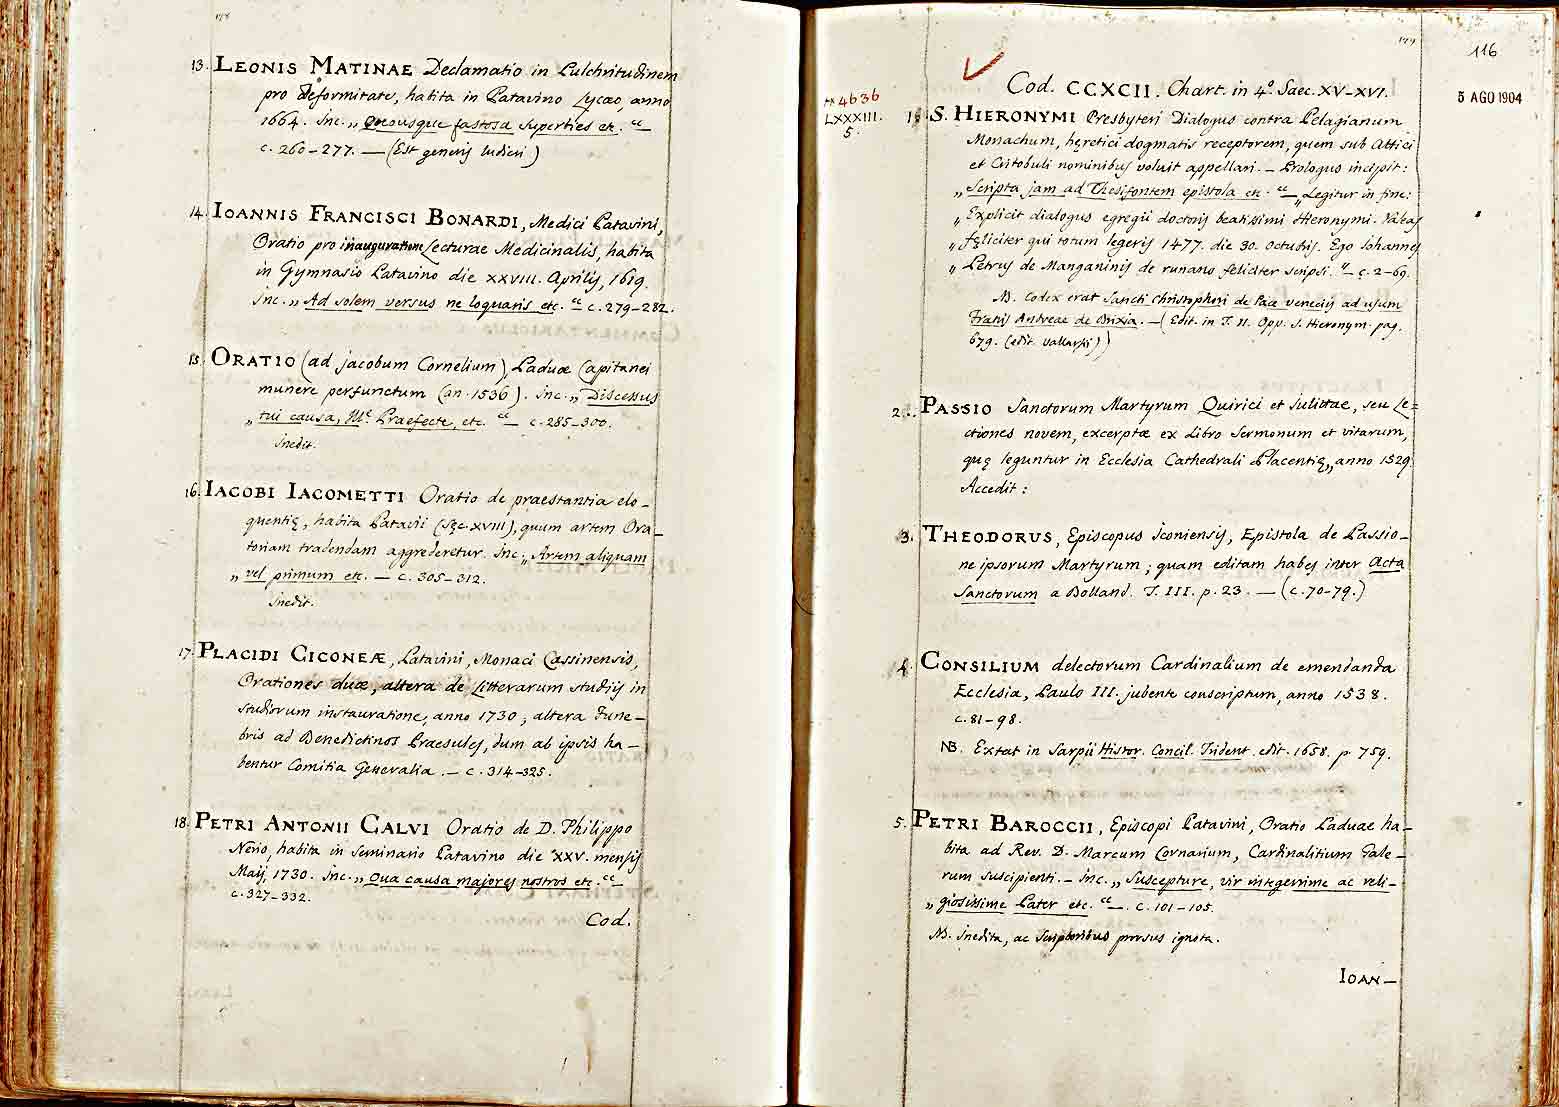 178
13. LEONIS MATINAE Declamatio in Pulchritudinem
pro deformitate, habita in Patavino Lycæo, anno
1664. Inc. „ Quousque fastosa superbies etc. “ —
c. 260-277. — (Est generis ludicri)
14. IOANNIS FRANCISCI BONARDI, Medici Patavini,
Oratio pro inauguratione Lecturae Medicinalis, habita
in Gymnasio Patavino die XXVIII. Aprilis, 1619.
Inc. „ Ad solem versus ne loquaris etc. “ c. 279-282.
15. ORATIO (ad Jacobum Cornelium), Paduæ Capitanei
munere perfunctum (an. 1536). Inc. „ Discessus
„ tui causa, Mc. Praefecte, etc. “ — c. 285-300.
Inedit.
16. IACOBI IACOMETTI Oratio de praestantia elo-
quentię, habita Patavii (Sęc. XVIII), quum artem Ora-
toriam tradendam aggrederetur. Inc. „ Artem aliquam
„ vel primum etc. — c. 305-312.
Inedit.
17. PLACIDI CICONEÆ, Patavini, Monaci Cassinensis,
Orationes duæ, altera de Litterarum studijs in
studiorum instauratione, anno 1730; altera Fune-
bris ad Benedictinos Praesules, dum ab ipsis ha-
bentur Comitia Generalia. — c. 314-325.
18. PETRI ANTONII CALVI Oratio de D. Philippo
Nerio, habita in Seminario Patavino die XXV. mensis
Maij, 1730. Inc. „ Qua causa majores nostros etc. “ —
c. 327-332.
Cod.
179
116
5 AGO 1904
4636
LXXXIII.
5.
Cod. CCXCII. Chart. in 4º. Saec. XV-XVI.
1. S. HIERONYMI Presbyteri Dialogus contra Pelagianum
Monachum, hęretici dogmatis receptorem, quem sub Attici
et Critobuli nominibus voluit appellari. — Prologus incipit:
„ Scripta jam ad Thesifontem epistola etc. “ — „ Legitur in fine:
„ Explicit dialogus egregii doctoris beatissimi Hieronymi. Valeas
„ fęliciter qui totum legeris 1477. die 30. Octubris. Ego Johannes
„ Petrus de Manganinis de runano feliciter scripsi. “ — c. 2-69.
NB. Codex erat Sancti Christophori de Pace Veneciis ad usum
Fratris Andreae de Brixia. — (Edit. in T. II. Opp. S. Hieronym. pag.
679. (edit. Vallarsii))
2. PASSIO Sanctorum Martyrum Quirici et Julittae, seu Le=
ctiones novem, excerptæ ex Libro Sermonum et vitarum,
quę leguntur in Ecclesia Cathedrali Placentię, anno 1529.
Accedit:
3. THEODORUS, Episcopus Iconiensis, Epistola de Passio-
ne ipsorum Martyrum; quam editam habes inter Acta
Sanctorum a Bolland. T. III. p. 23. — (c. 70-79.)
4. CONSILIUM delectorum Cardinalium de emendanda
Ecclesia, Paulo III. jubente conscriptum, anno 1538.
c. 81-98.
NB. Extat in Sarpii Histor. Concil. Trident. edit. 1658. p. 759.
5. PETRI BAROCCII, Episcopi Patavini, Oratio Paduae ha-
bita ad Rev. D. Marcum Cornarium, Cardinalitium Gale-
rum suscipienti. — Inc. „ Suscepture, vir integerrime ac reli-
„ giosissime Pater etc. “ —. c. 101-105.
NB. Inedita, ac Scriptoribus prorsus ignota.
IOAN-